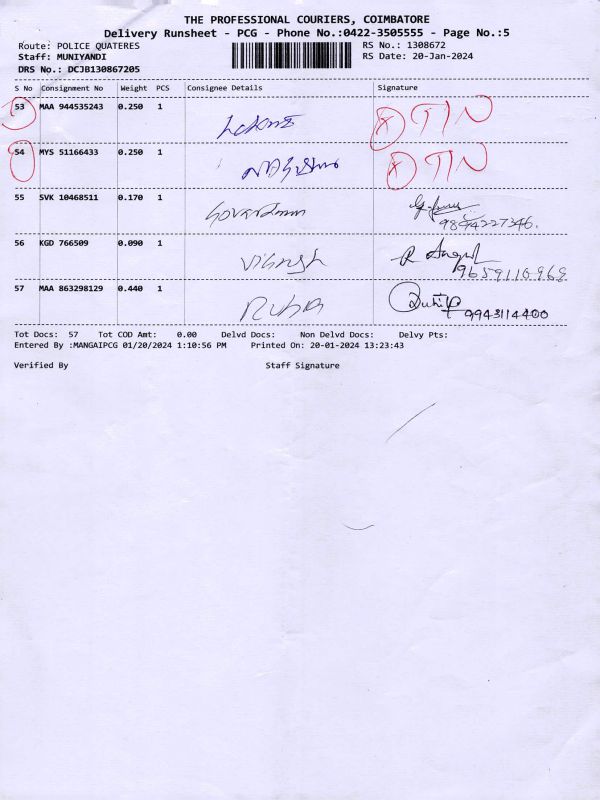 THE PROFESSIONAL COURIERS, COIMBATORE
Delivery Runsheet - PCG - Phone No.:0422-3505555 - Page No.:5
Route: POLICE QUATERES RS No.: 1308672
Staff: MUNIYANDI RS Date: 20-Jan-2024
DRS No.: DCJB130867205
S No Consignment No Weight PCS Consignee Details Signature
53 MAA 944535243 0.250 1
54 MYS 51166433 0.250 1
55 SVK 10468511 0.170 1
56 KGD 766509 0.090 1 Vignesh
9659110968
57 MAA 863298129 0.440 1
9943114400
Tot Docs: 57 Tot COD Amt: 0.00 Delvd Docs: Non Delvd Docs: Delvy Pts:
Entered By :MANGAIPCG 01/20/2024 1:10:56 PM Printed On: 20-01-2024 13:23:43
Verified By Staff Signature